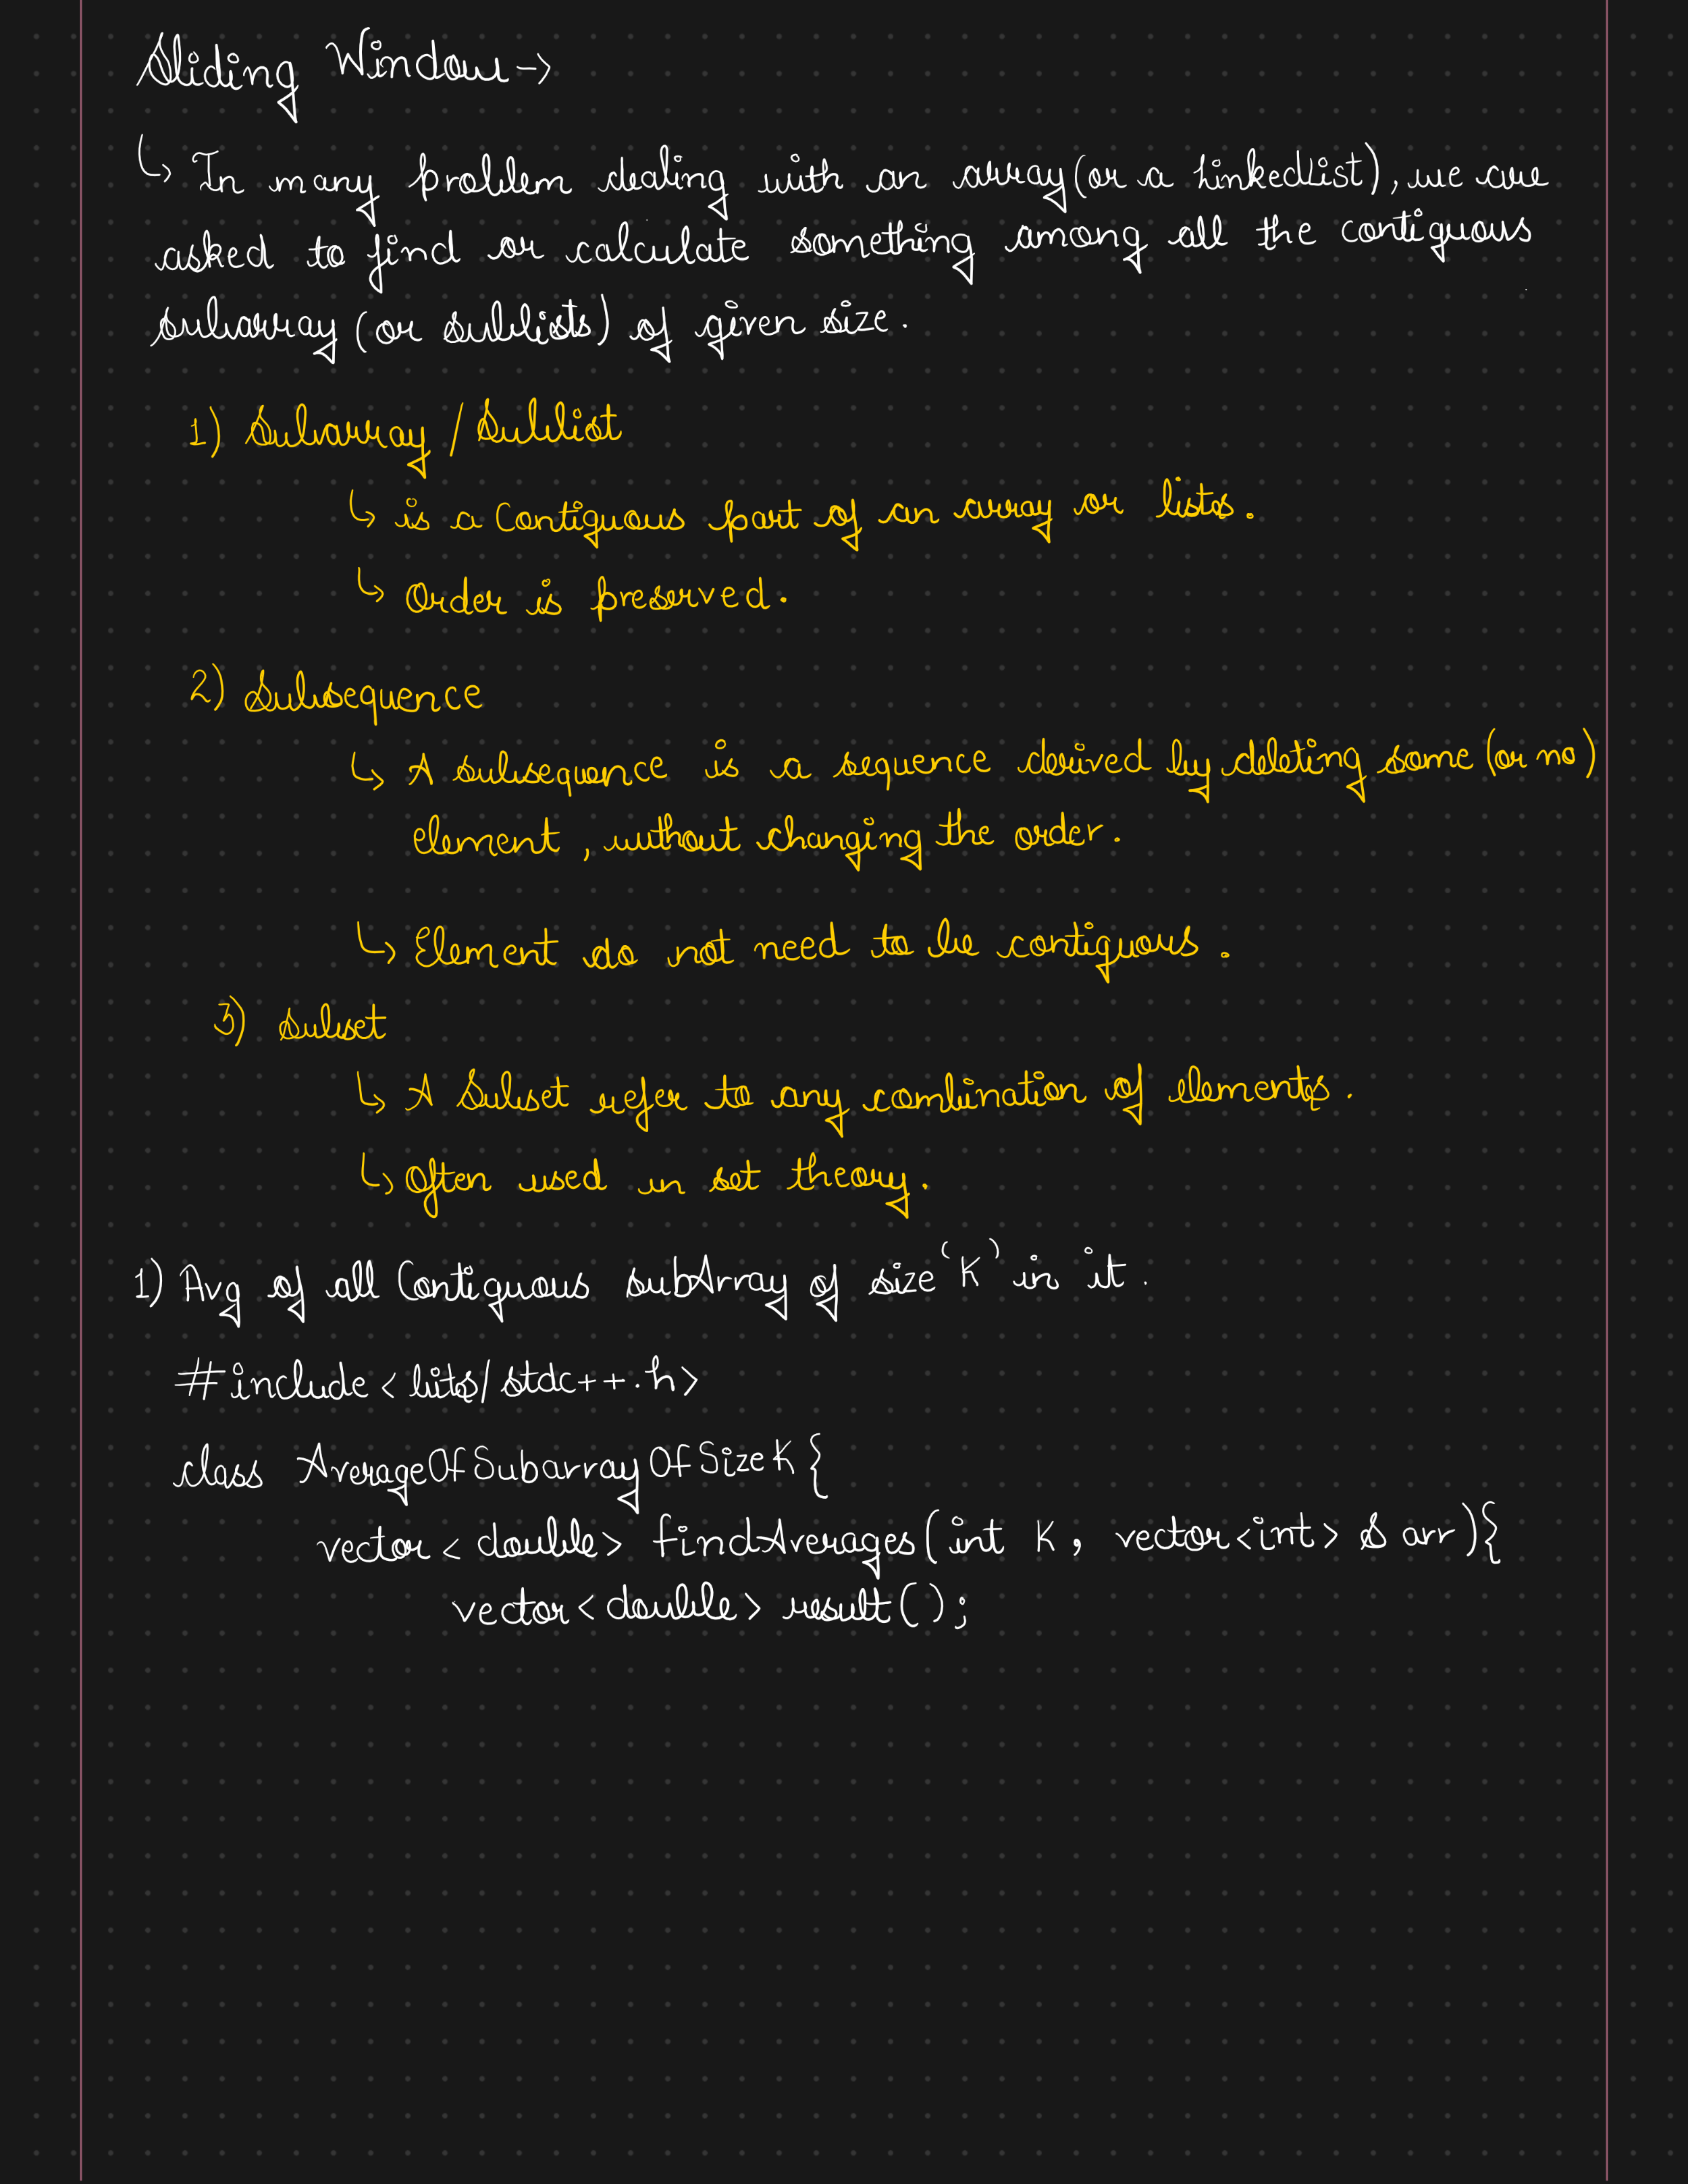 Sliding Window →
↳ In many problem dealing with an array (or a LinkedList), we are
asked to find or calculate something among all the contiguous
subarray (or sublists) of given size.
1) Subarray / Sublist
↳ is a Contiguous part of an array or lists.
↳ Order is preserved.
2) Subsequence
↳ A subsequence is a sequence derived by deleting some (or no)
element, without changing the order.
↳ Element do not need to be contiguous.
3) Subset
↳ A Subset refer to any combination of elements.
↳ Often used in set theory.
1) Avg of all Contiguous subArray of size 'K' in it.
#include <bits/stdc++.h>
class AverageOfSubarrayOfSizeK {
vector<double> findAverages(int K, vector<int> & arr){
vector<double> result();